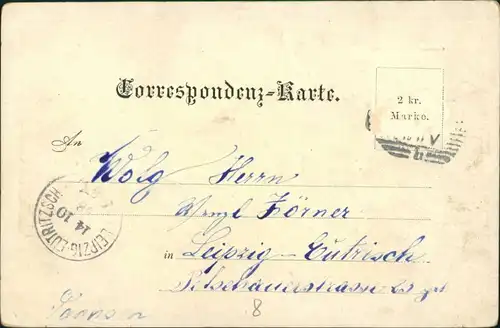 Correspondenz-Karte.
2 kr.
Marke.
An
Wolg Herrn
Wenzl Körner
in Leipzig-Eutrisch
LEIPZIG-EUTRITZSCH
14 10
8